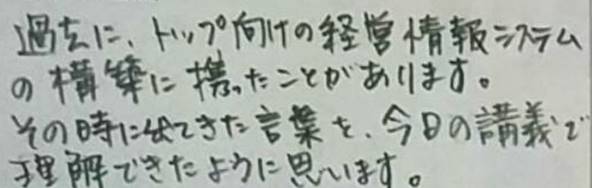 過去に、トップ向けの経営情報システム
の構築に携ったことがあります。
その時に出てきた言葉を、今日の講義で
理解できたように思います。